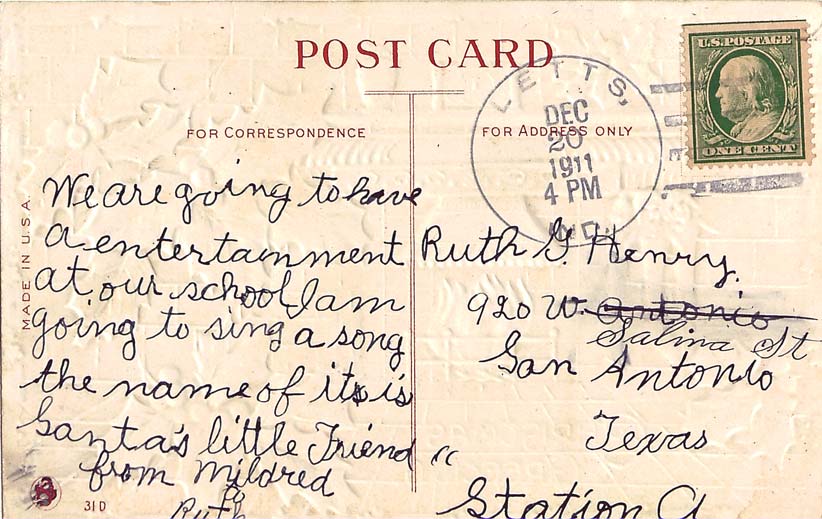 POST CARD
FOR CORRESPONDENCE
FOR ADDRESS ONLY
U.S. POSTAGE
ONE CENT
LETTS,
DEC
20
1911
4 PM
IND.
MADE IN U.S.A.
We are going to have
a entertainment
at our school I am
going to sing a song
the name of it is
Santa's little Friend "
from Mildred
to
Ruth
31D
Ruth G. Henry.
920 W. Antonio
Salina St
San Antonio
Texas
Station A